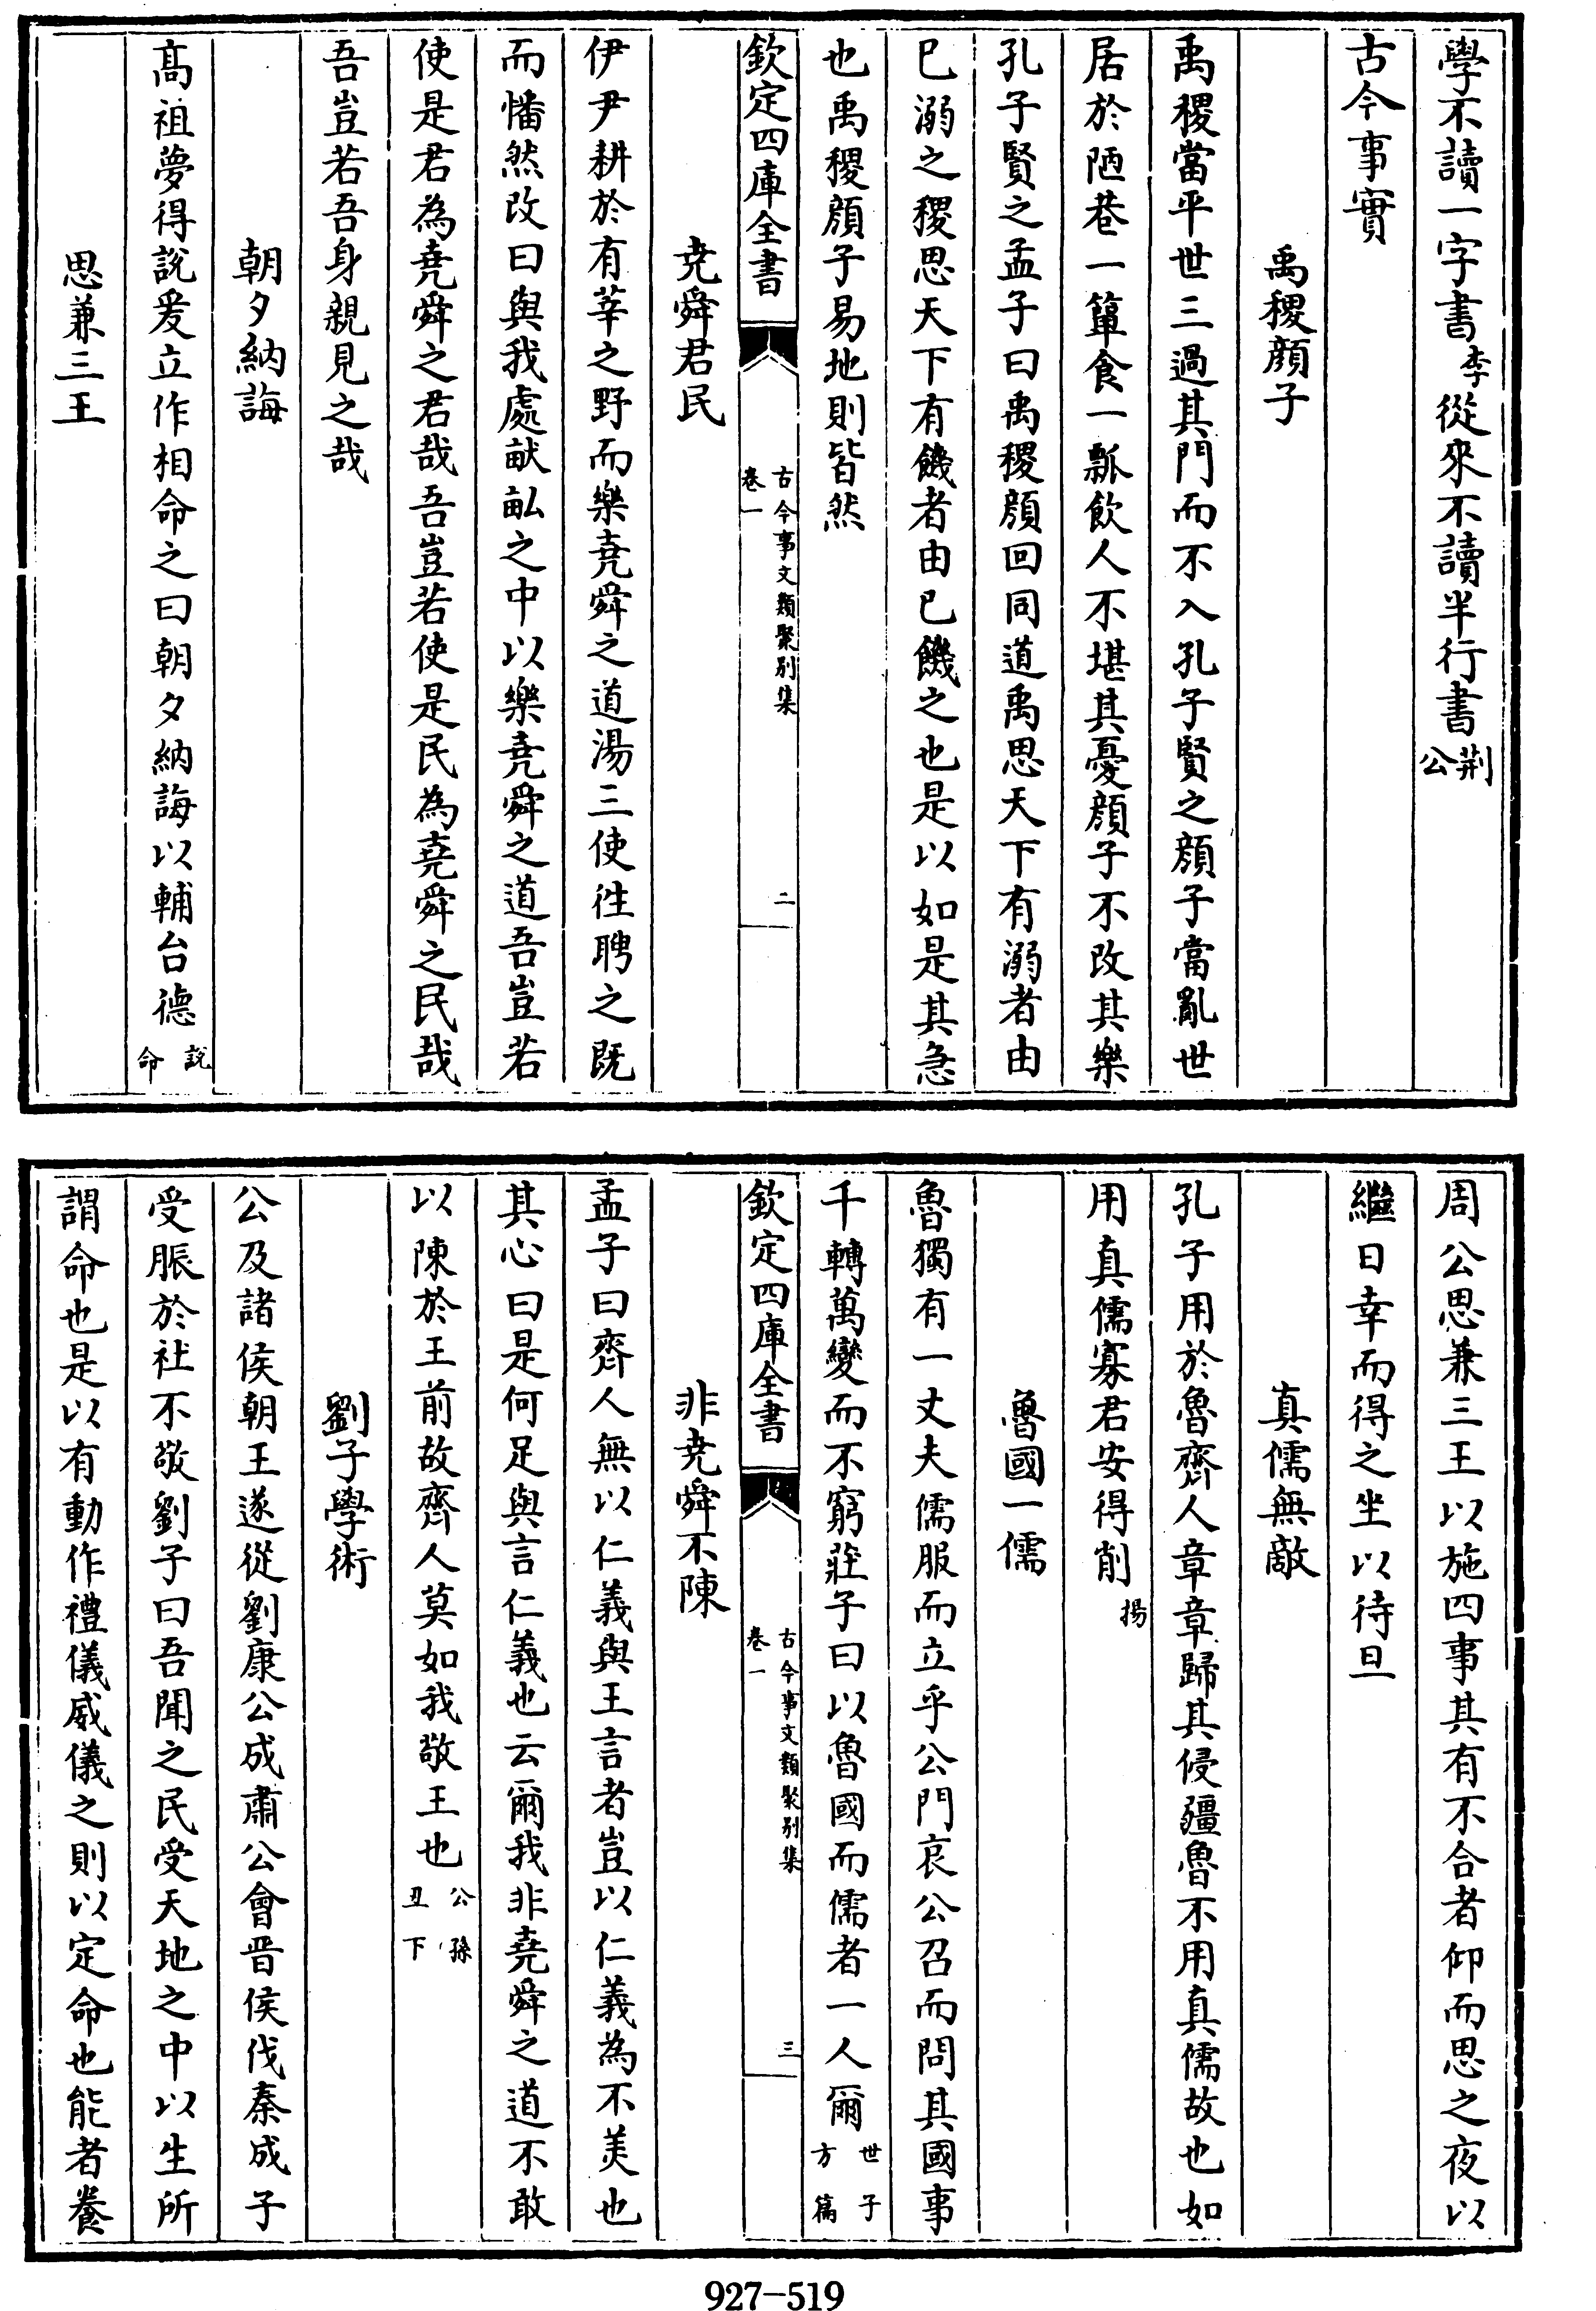 學不讀一字書李從來不讀半行書荆公
古今事實
禹稷顔子
禹稷當平世三過其門而不入孔子賢之顔子當亂世
居於陋巷一簞食一瓢飲人不堪其憂顔子不改其樂
孔子賢之孟子曰禹稷顔回同道禹思天下有溺者由
已溺之稷思天下有饑者由已饑之也是以如是其急
也禹稷顔子易地則皆然
欽定四庫全書
古今事文類聚别集
卷一
二
堯舜君民
伊尹耕於有莘之野而樂堯舜之道湯三使徃聘之既
而幡然改曰與我處畎畝之中以樂堯舜之道吾豈若
使是君為堯舜之君哉吾豈若使是民為堯舜之民哉
吾豈若吾身親見之哉
朝夕納誨
高祖夢得説爰立作相命之曰朝夕納誨以輔台德説命
思兼三王
周公思兼三王以施四事其有不合者仰而思之夜以
繼日幸而得之坐以待旦
真儒無敵
孔子用於魯齊人章章歸其侵疆魯不用真儒故也如
用真儒寡君安得削揚
魯國一儒
魯獨有一丈夫儒服而立乎公門哀公召而問其國事
千轉萬變而不窮莊子曰以魯國而儒者一人爾世子方篇
欽定四庫全書
古今事文類聚别集
卷一
三
非堯舜不陳
孟子曰齊人無以仁義與王言者豈以仁義為不美也
其心曰是何足與言仁義也云爾我非堯舜之道不敢
以陳於王前故齊人莫如我敬王也公孫丑下
劉子學術
公及諸侯朝王遂從劉康公成肅公會晋侯伐秦成子
受脤於社不敬劉子曰吾聞之民受天地之中以生所
謂命也是以有動作禮儀威儀之則以定命也能者養
927-519